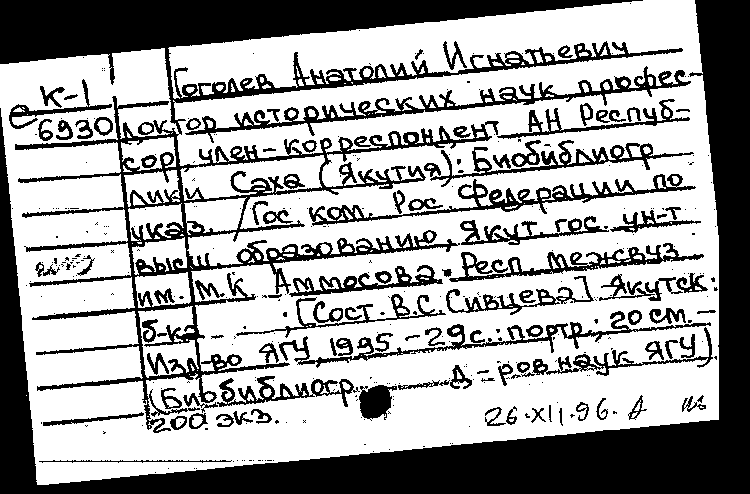 Гоголев Анатолий Игнатьевич
К-1
е 6930
доктор исторических наук, профес-
сор, член-корреспондент АН Респуб-
лики Саха (Якутия): Библиогр
указ. /Гос. ком. Рос. Федерации по
высш. образованию, Якут. гос. ун-т
им. М.К Аммосова. Респ. межвуз
б-ка ; [Сост. В.С. Сивцева] - Якутск:
Изд-во ЯГУ, 1995. - 29 с.: портр.; 20 см. -
(Биобиблиогр. д-ров наук ЯГУ)
200 экз.
26.XII.96. А